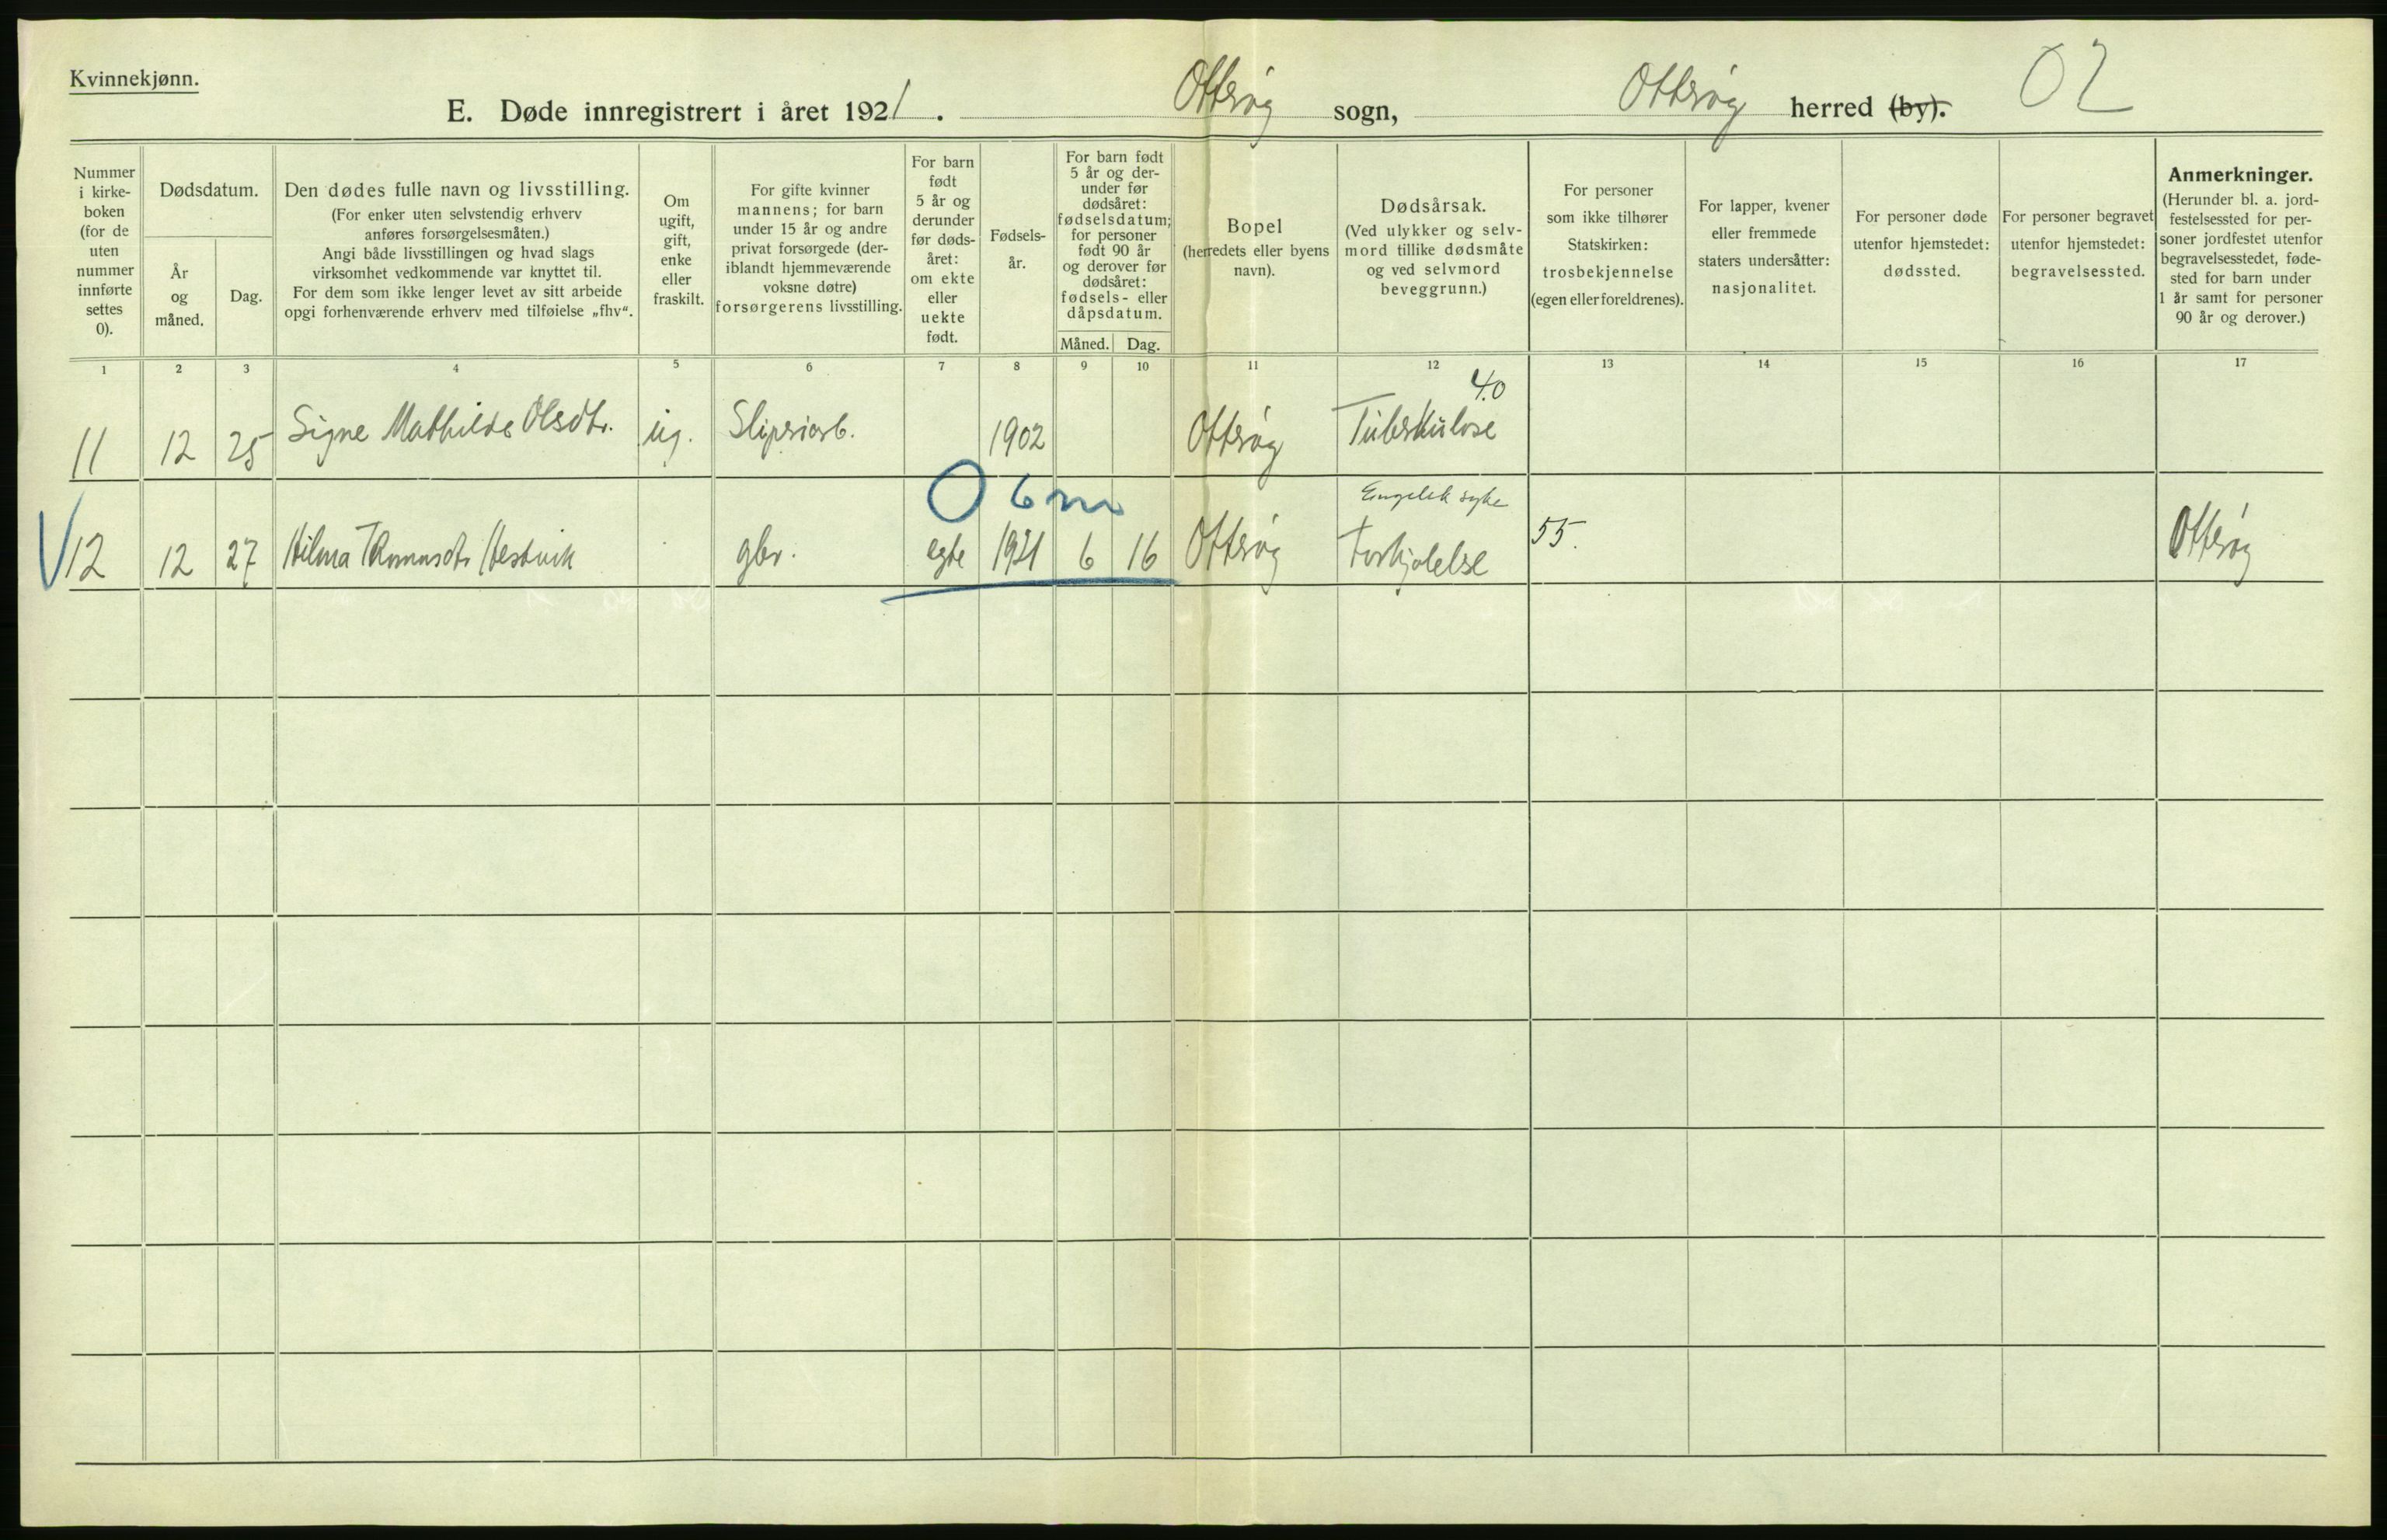 Kvinnekjønn.
E. Døde innregistrert i året 1921. Otterøy sogn, Otterøy herred (by). 02
Nummer i kirke-boken (for de uten nummer innførte settes 0).
Dødsdatum.
År og måned.
Dag.
Den dødes fulle navn og livsstilling.
(For enker uten selvstendig erhverv
anføres forsørgelsesmåten.)
Angi både livsstillingen og hvad slags
virksomhet vedkommende var knyttet til.
For dem som ikke lenger levet av sitt arbeide
opgi forhenværende erhverv med tilføielse „fhv“.
Om
ugift,
gift,
enke
eller
fraskilt.
For gifte kvinner
mannens; for barn
under 15 år og andre
privat forsørgede (der-
iblandt hjemmeværende
voksne døtre)
forsørgerens livsstilling.
For barn
født
5 år og
derunder
før døds-
året:
om ekte
eller
uekte
født.
Fødsels-
år.
For barn født
5 år og der-
under før
dødsåret:
fødselsdatum;
for personer
født 90 år
og derover før
dødsåret:
fødsels- eller
dåpsdatum.
Måned. Dag.
Bopel
(herredets eller byens
navn).
Dødsårsak.
(Ved ulykker og selv-
mord tillike dødsmåte
og ved selvmord
beveggrunn.)
For personer
som ikke tilhører
Statskirken:
trosbekjennelse
(egen eller foreldrenes).
For lapper, kvener
eller fremmede
staters undersåtter:
nasjonalitet.
For personer døde
utenfor hjemstedet:
dødssted.
For personer begravet
utenfor hjemstedet:
begravelsessted.
Anmerkninger.
(Herunder bl. a. jord-
festelsessted for per-
soner jordfestet utenfor
begravelsesstedet, føde-
sted for barn under
1 år samt for personer
90 år og derover.)
1 2 3 4 5 6 7 8 9 10 11 12 13 14 15 16 17
40
11 12 25 Signe Mathilde Olsdtr. ug. Sliperiarb. 1902 Otterøy Tuberkulose
0 6 m Engelsk syke
12 12 27 Hilma Hestvik gbr. egte 1921 6 16 Otterøy Forkjølelse 55. Otterøy